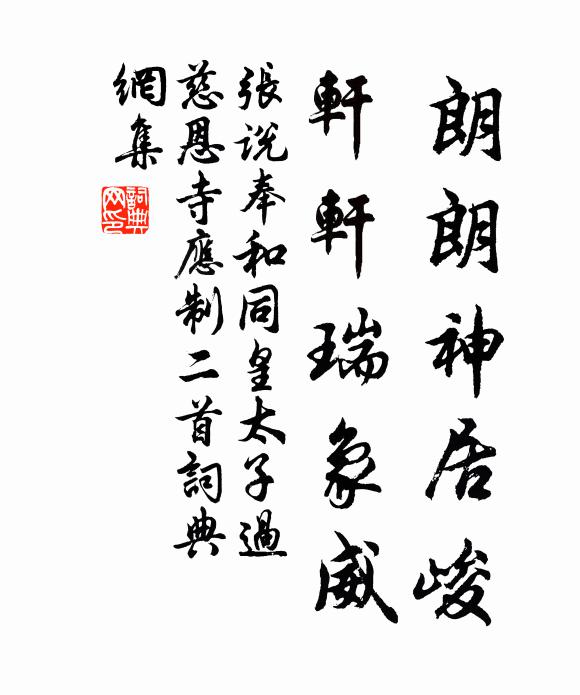 朗朗神居峻
軒軒瑞象威
張說奉和同皇太子過
慈恩寺應制二首詞典
網集
詞典
网印